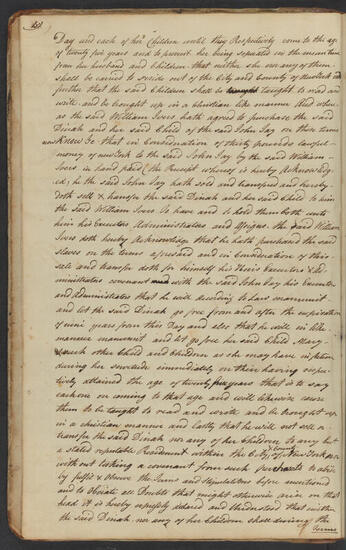 Day and each of her Children until they Respectively come to the age
of twenty five years and to prevent her being seperated in the mean time
from her husband and Children that neither she nor any of them
shall be carried to reside out of the City and County of New York and
further that the said Children shall be taught to read and
write and be brought up in a christian like manner And where
as the said William Ivers hath agreed to purchase the said
Dinah and her said Child of the said John Jay on those terms
Know Ye that in Consideration of thirty pounds lawful
money of New York to the said John Jay by the said William
Ivers in hand paid (the Receipt whereof is hereby Acknowledg
ed) he the said John Jay hath sold and transfered and hereby
doth sell & transfer the said Dinah and her said Child to him
the said William Ivers To have and to hold them both unto
him his Executors Administrators and Assigns the said William
Ivers doth hereby Acknowledge that he hath purchased the said
slaves on the terms aforesaid and in Consideration of this
sale and transfer doth for himself his Heirs Executors & Ad
ministrators covenant with the said John Jay his Executors
and Administrators that he will according to Law manumit
and let the said Dinah go free from and after the expiration
of nine years from this Day and also that he will in like
manner manumit and let go free her said Child Mary
& such other Child and Children as she may have in person
during her servitude immediately on their having respec
tively attained the age of twenty five years that is to say
each one on coming to that age and will likewise cause
them to be taught to read and write and be brought up
in a christian manner and Lastly that he will not sell or
transfer the said Dinah nor any of her Children to any but
a stated reputable Resident within the City & County of New York nor
without taking a covenant from such purchaser to abide
by fulfil & Observe the Terms and Stipulations before mentioned
and to Obviate all Doubts that might otherwise arise on that
head it is hereby expressly agreed and Understood that neither
the said Dinah nor any of her Children shall during the
Terms